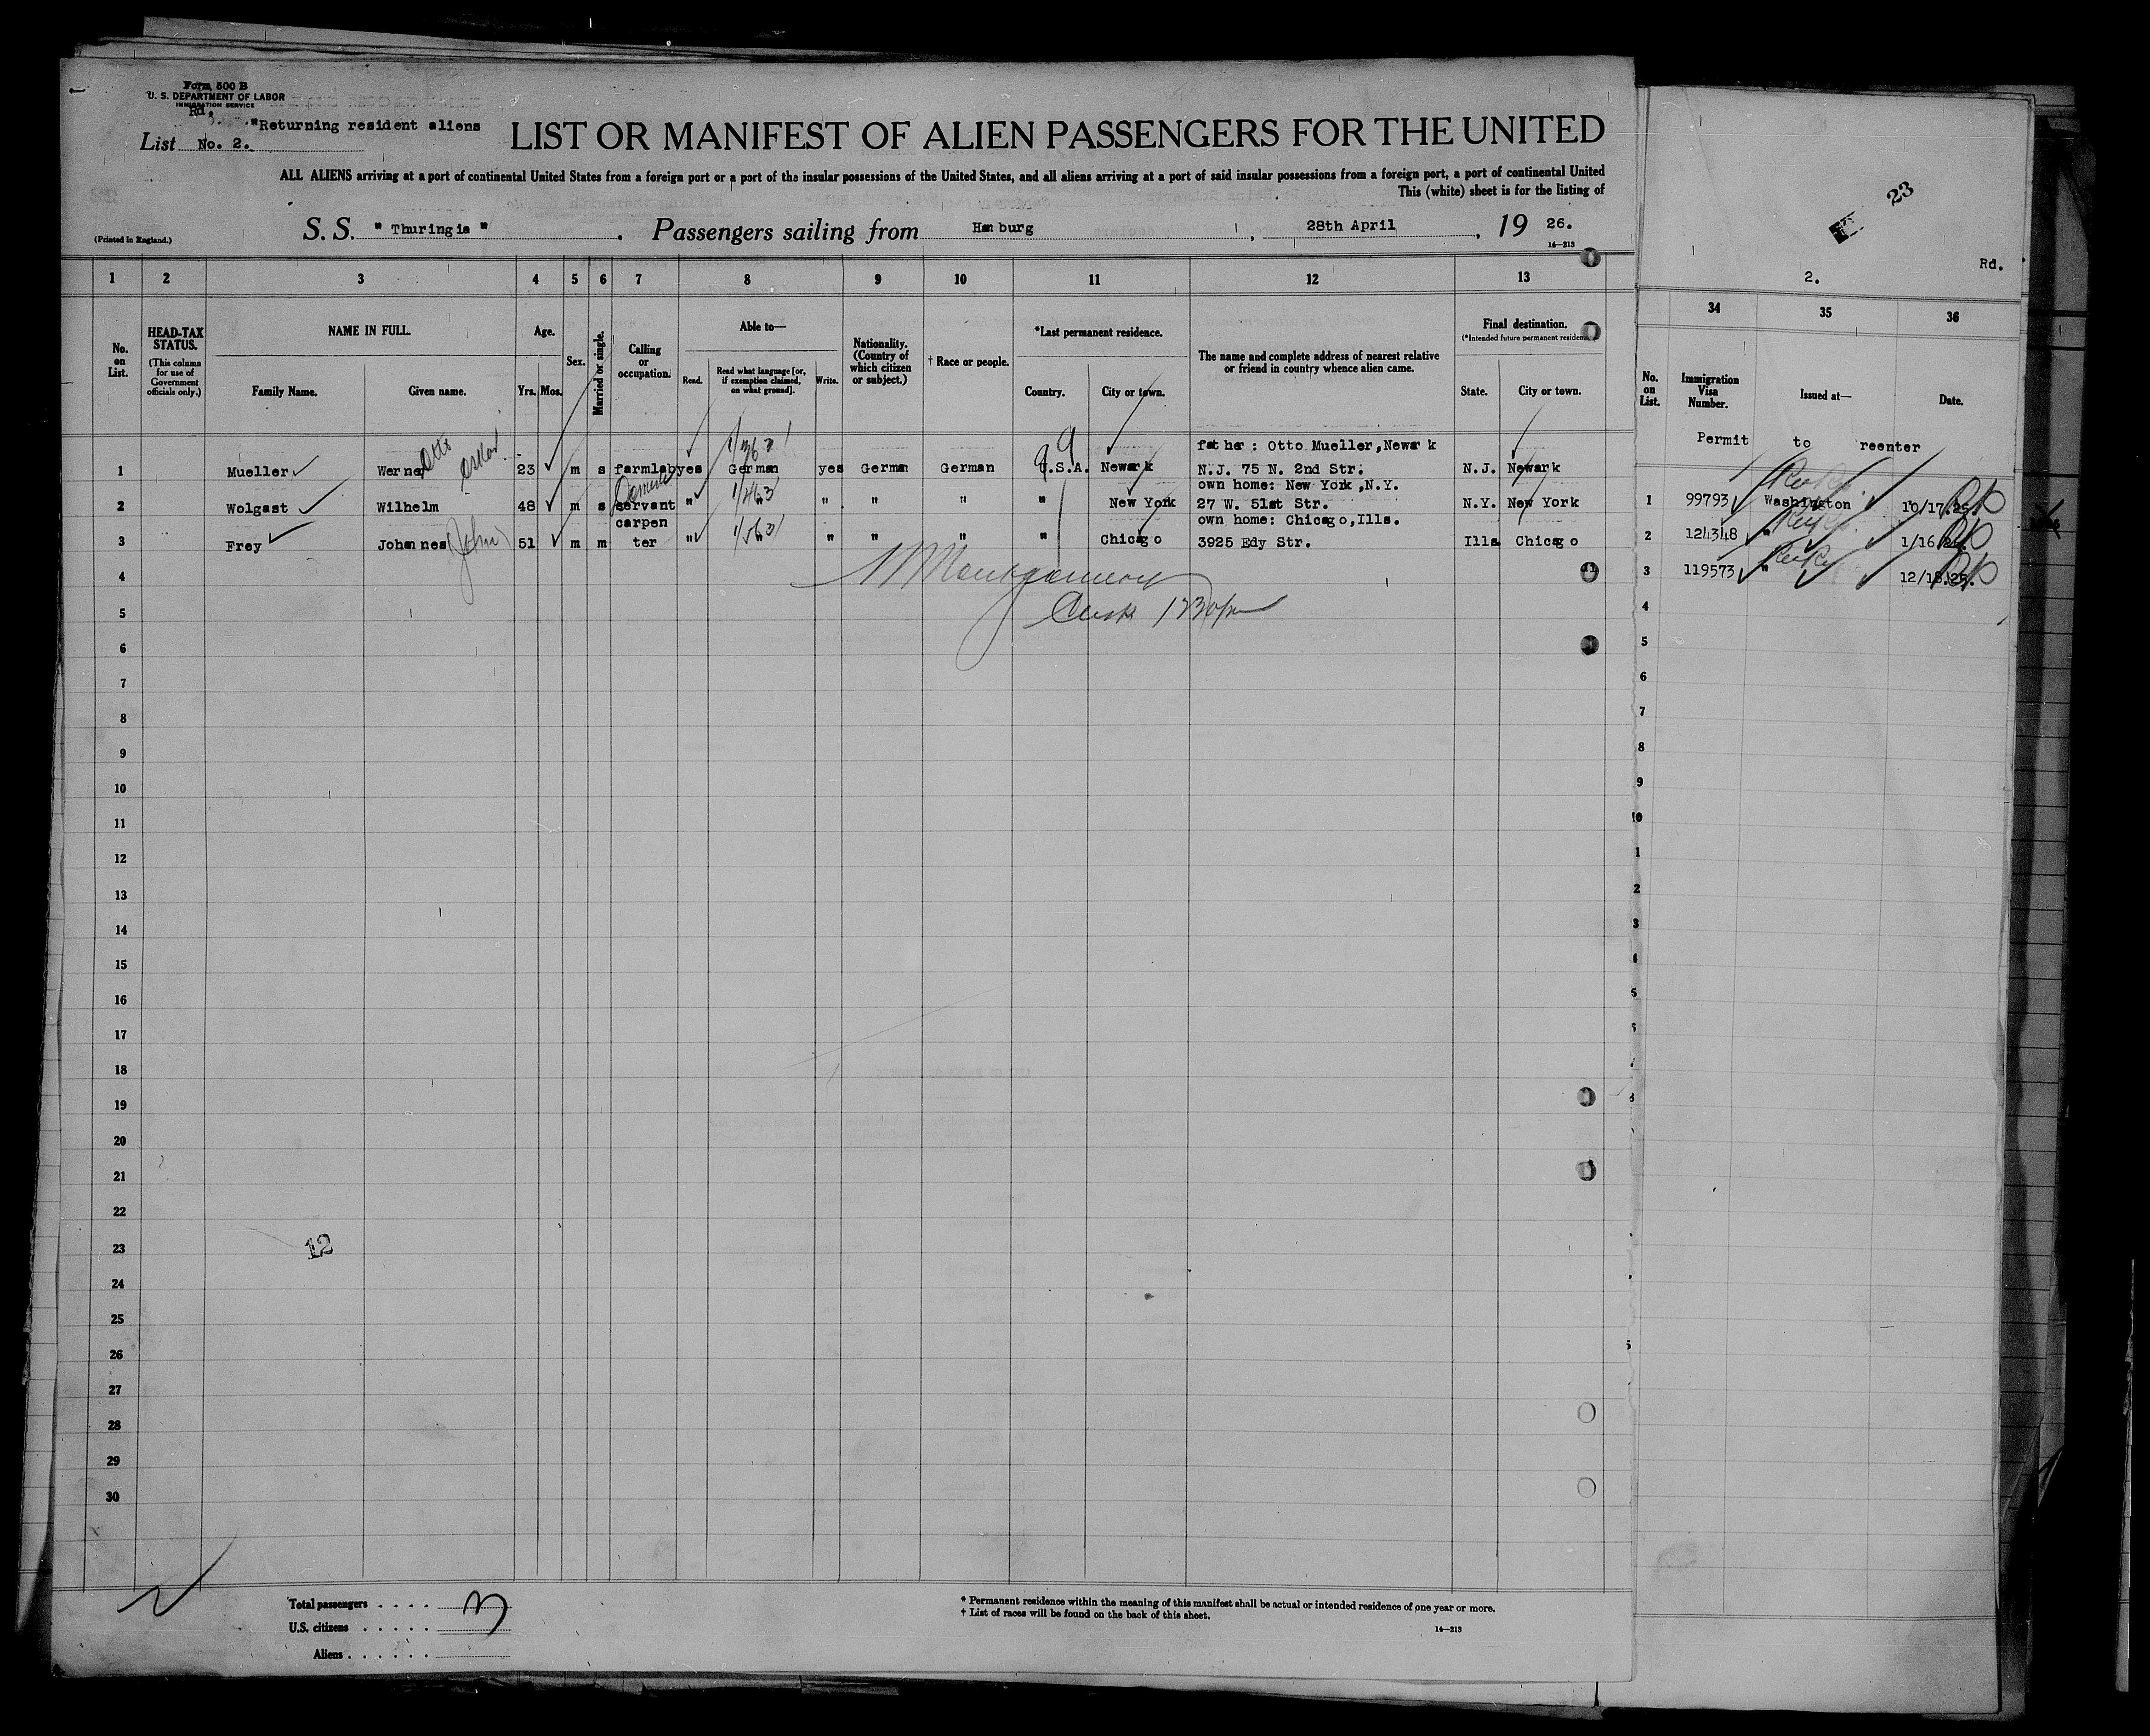 Form 500 B
U. S. DEPARTMENT OF LABOR
IMMIGRATION SERVICE
Rd.
"Returning resident aliens
List No. 2.
LIST OR MANIFEST OF ALIEN PASSENGERS FOR THE UNITED
ALL ALIENS arriving at a port of continental United States from a foreign port or a port of the insular possessions of the United States, and all aliens arriving at a port of said insular possessions from a foreign port, a port of continental United
This (white) sheet is for the listing of
(Printed in England.)
S. S. " Thuringia " . Passengers sailing from Hamburg , 28th April , 19 26.
14—213
1 2 3 4 5 6 7 8 9 10 11 12 13
No. on List.
HEAD-TAX STATUS.
(This column for use of Government officials only.)
NAME IN FULL.
Family Name. Given name.
Age.
Yrs. Mos.
Sex.
Married or single.
Calling or occupation.
Able to—
Read. Read what language [or, if exemption claimed, on what ground]. Write.
Nationality. (Country of which citizen or subject.)
† Race or people.
*Last permanent residence.
Country. City or town.
The name and complete address of nearest relative or friend in country whence alien came.
Final destination.
(*Intended future permanent residence.)
State. City or town.
father : Otto Mueller,Newark
1 Mueller Werner Otto Oskar 23 m s farmlab yes German yes German German U.S.A. Newark N.J. 75 N. 2nd Str. N.J. Newark
own home: New York ,N.Y.
2 Wolgast Wilhelm 48 m s Domestic servant " " " " " " New York 27 W. 51st Str. N.Y. New York
carpen own home: Chicago,Ills.
3 Frey Johannes (John) 51 m m ter " " " " " " Chicago 3925 Edy Str. Ills Chicago
4
Montgomery
5
1230pm
6
7
8
9
10
11
12
13
14
15
16
17
18
19
20
21
22
23
12
24
25
26
27
28
29
30
Total passengers . . . . 3
U.S. citizens . . . . .
Aliens . . . . . .
* Permanent residence within the meaning of this manifest shall be actual or intended residence of one year or more.
† List of races will be found on the back of this sheet.
14—213
23
Rd.
2.
34 35 36
No. on List.
Immigration Visa Number.
Issued at—
Date.
Permit to reenter
1 99793 Washington 10/17.25.
2 124348 " 1/16
3 119573 " 12/18.25.
4
5
6
7
8
9
10
1
2
3